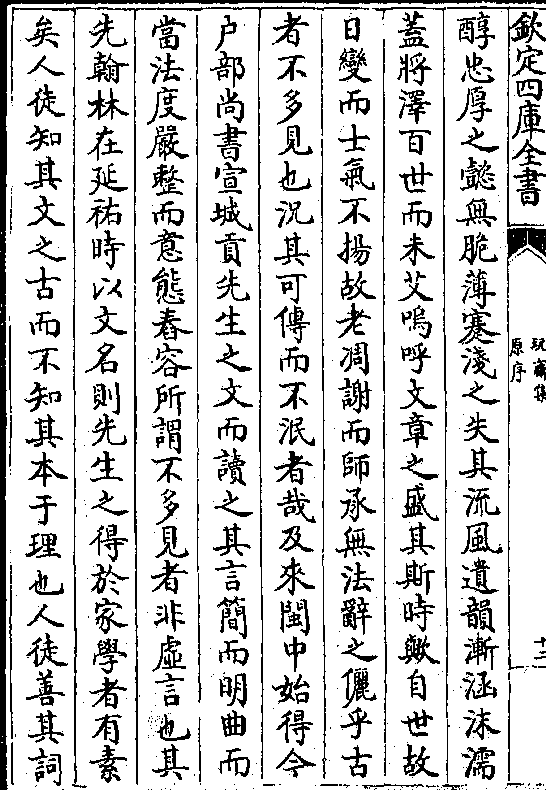 欽定四庫全書
玩齋集
原序
十二
醇忠厚之懿無脆薄蹇淺之失其流風遺韻漸涵沫濡
蓋將澤百世而未艾嗚呼文章之盛其斯時歟自世故
日變而士氣不揚故老凋謝而師承無法辭之儷乎古
者不多見也況其可傳而不泯者哉及來閩中始得今
户部尚書宣城貢先生之文而讀之其言簡而明曲而
當法度嚴整而意態舂容所謂不多見者非虛言也其
先翰林在延祐時以文名則先生之得於家學者有素
矣人徒知其文之古而不知其本于理也人徒善其詞